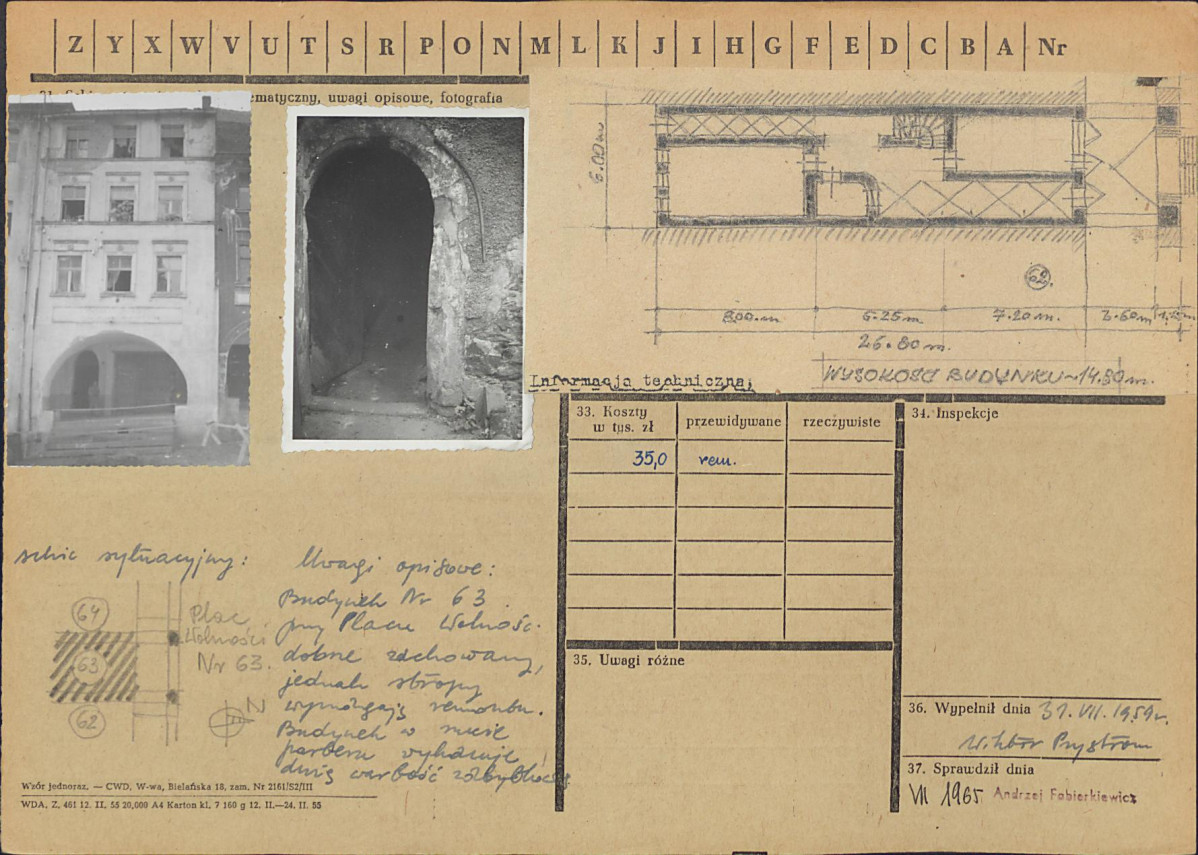 Z Y X W V U T S R P O N M L K J I H G F E D C B A Nr
ematyczny, uwagi opisowe, fotografia
6.00 m
62.
8.00.m
6.25 m
7.20 m.
3.60 m
26.80 m.
WYSOKOŚĆ BUDYNKU ~14.80 m.
Informacja techniczna;
33. Koszty w tys. zł
przewidywane
rzeczywiste
35,0 rem.
34. Inspekcje
35. Uwagi różne
szkic sytuacyjny:
64
63
62
Plac
Wolności
Nr 63.
N
Uwagi opisowe:
Budynek Nr 63
przy Placu Wolnośc.
dobrze zachowany,
jednak stropy
wymagają remontu.
Budynek w
parteru wykazuje
dużą wartość
36. Wypełnił dnia 31. VII. 1959 r.
Wiktor
37. Sprawdził dnia
VII 1965 Andrzej Fabierkiewicz
Wzór jednoraz. — CWD, W-wa, Bielańska 18, zam. Nr 2161/S2/III
WDA. Z. 461 12. II. 55 20,000 A4 Karton kl. 7 160 g 12. II.—24. II. 55